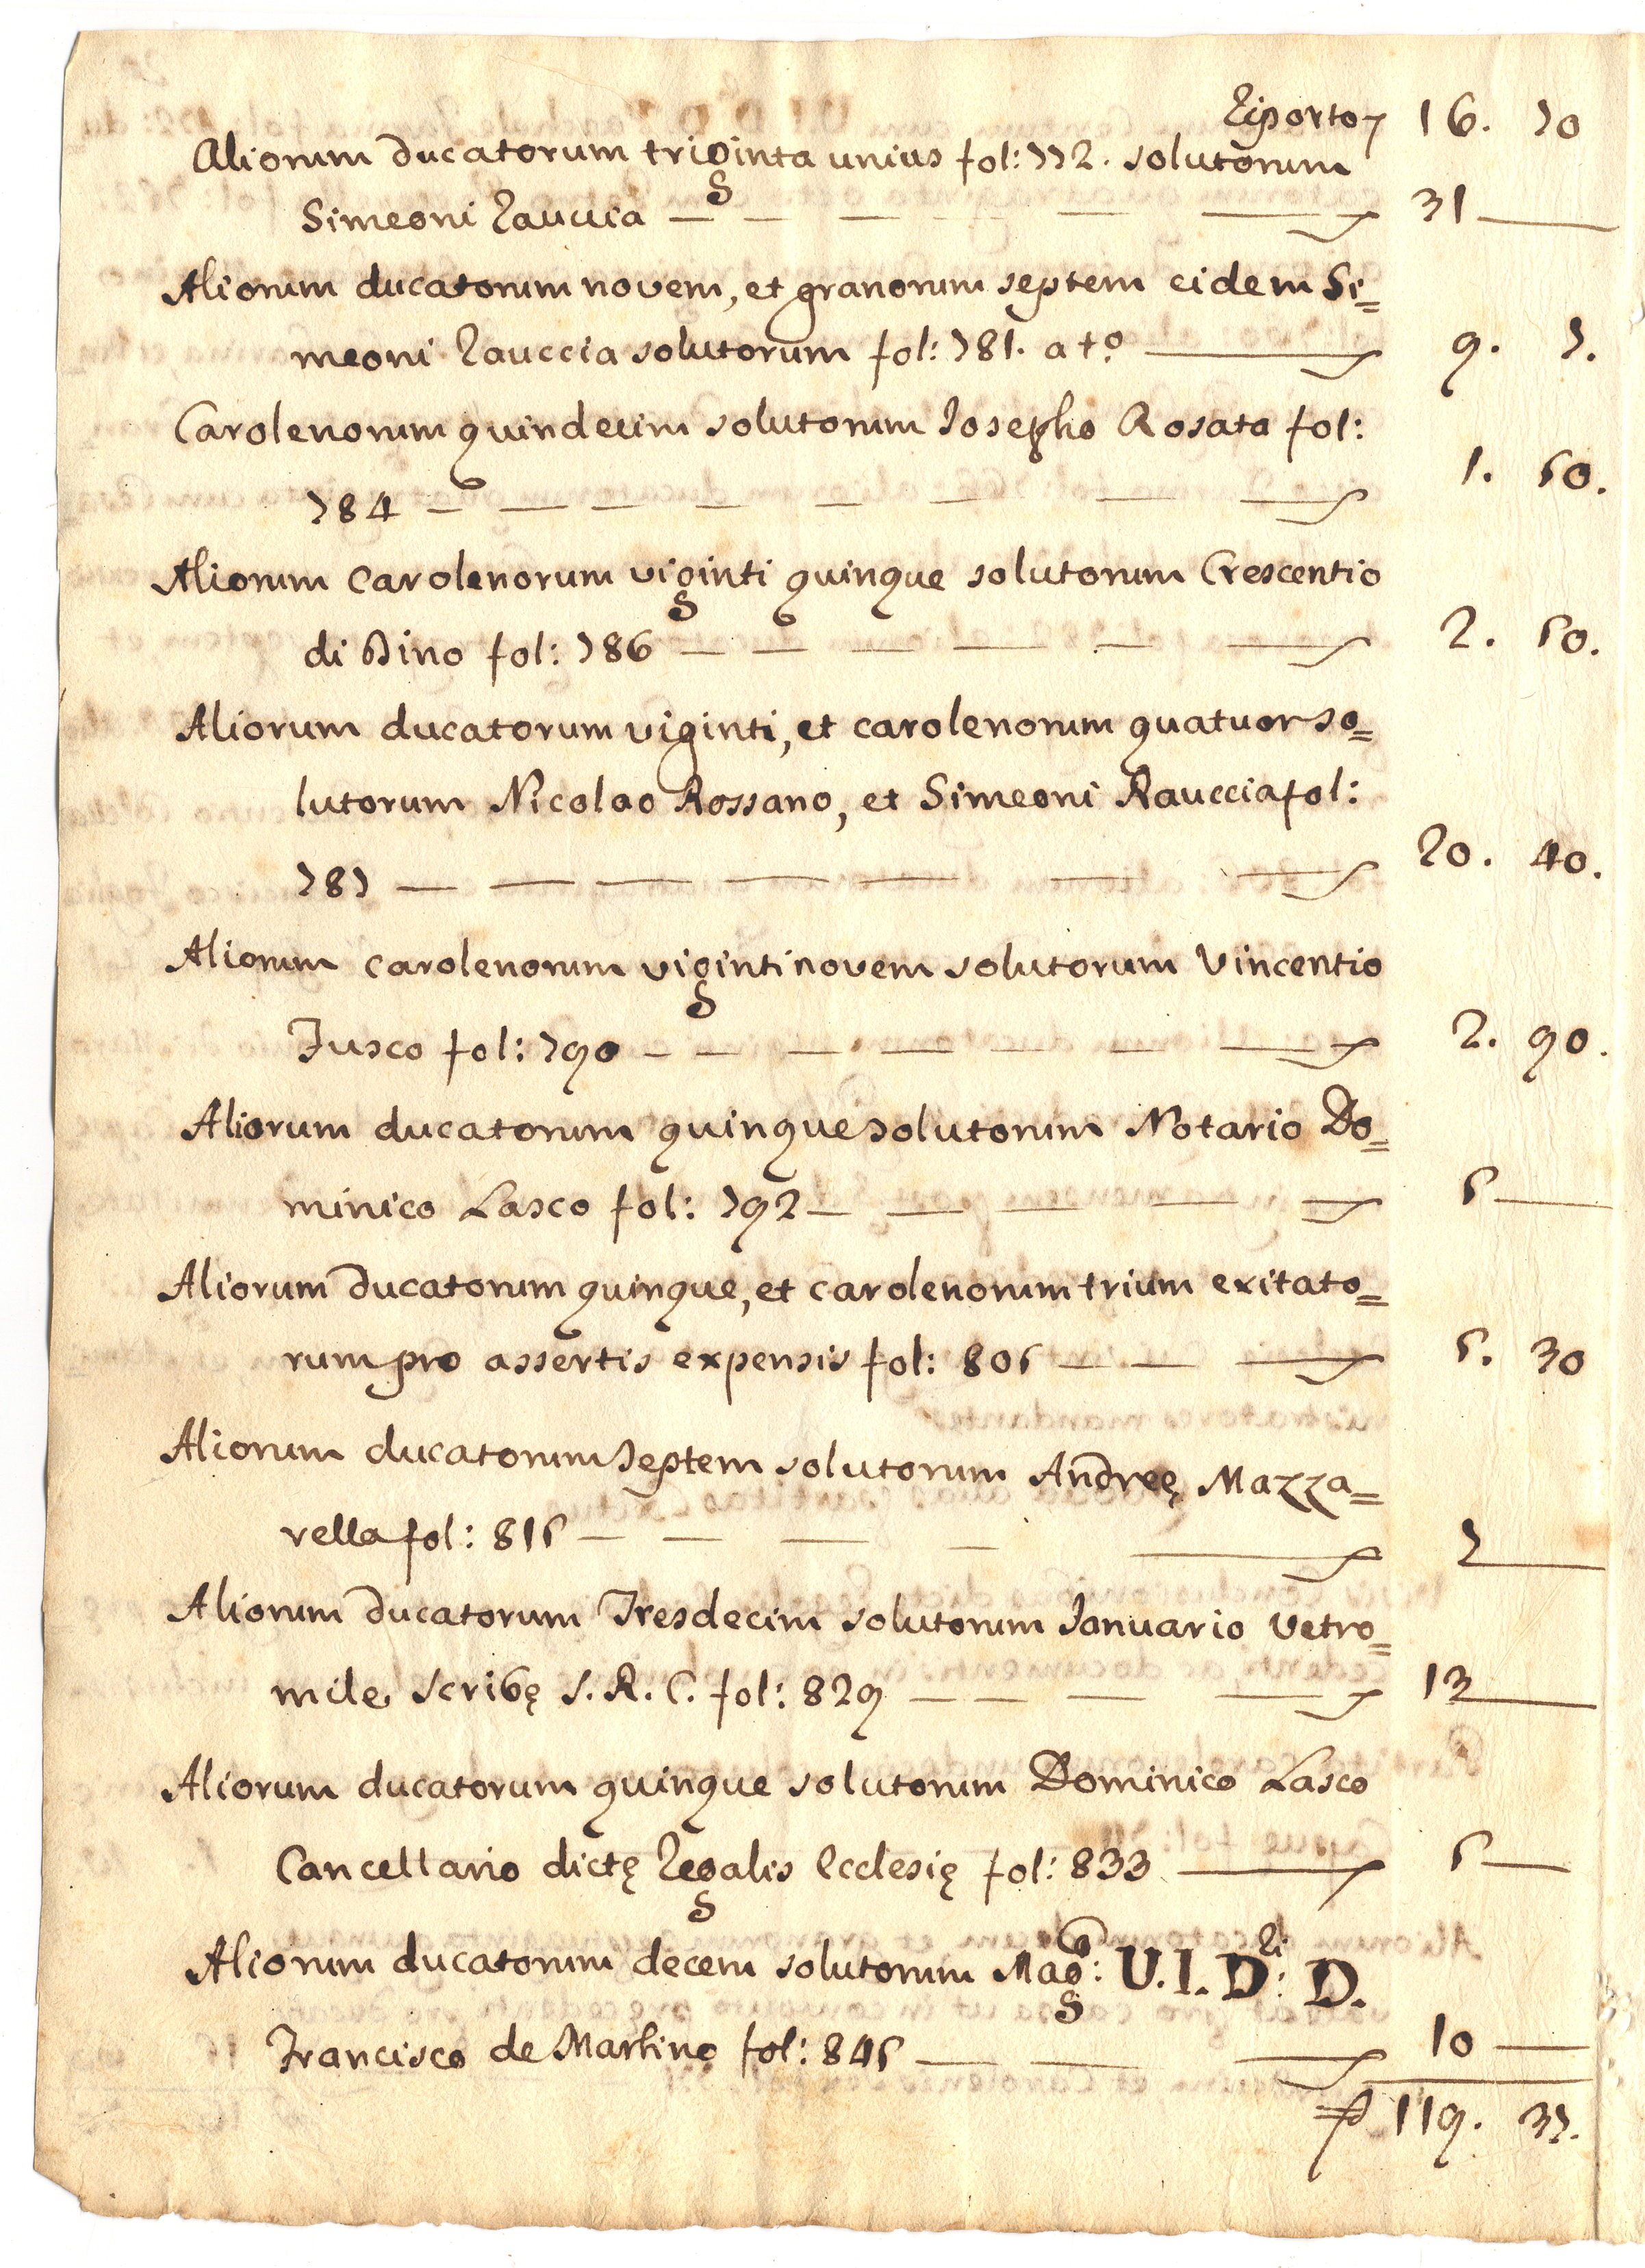 Riporto 16. 70
Aliorum ducatorum triginta unius fol: 772. solutorum
Simeoni Rauccia — 31 —
Aliorum ducatorum novem, et granorum septem eidem Si=
meoni Rauccia solutorum fol: 781. a t.º — 9. 7.
Carolenorum quindecim solutorum Josepho Rosata fol:
784 — 1. 50.
Aliorum carolenorum viginti quinque solutorum Crescentio
di Dino fol: 786 — 2. 50.
Aliorum ducatorum viginti, et carolenorum quatuor so=
lutorum Nicolao Rossano, et Simeoni Rauccia fol:
787 — 20. 40.
Aliorum carolenorum viginti novem solutorum Vincentio
Fusco fol: 790 — 2. 90.
Aliorum ducatorum quinque solutorum Notario Do=
minico Lasco fol: 792 — 5 —
Aliorum ducatorum quinque, et carolenorum trium exitato=
rum pro assertis expensis fol: 805 — 5. 30
Aliorum ducatorum septem solutorum Andreę Mazza=
rella fol: 815 — 7 —
Aliorum ducatorum Tresdecim solutorum Januario Vetro=
mile scribę S. R. C. fol: 829 — 13 —
Aliorum ducatorum quinque solutorum Dominico Lasco
Cancellario dictę Regalis Ecclesię fol: 833 — 5 —
Aliorum ducatorum decem solutorum Mag:co U. I. D:ri D.
Francisco de Martino fol: 845 — 10 —
119. 37.